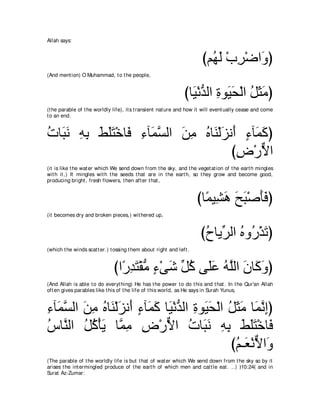 Allah says:
(وَاضْرِبْ لَهُم)
(And mention) O Muhammad, to the people,
(مَّثَلَ الْحَيَوةِ الدُّنْيَا)
(the parable of the worldly life), its transient nature and how it will eventually cease and come
to an end.
(كَمَآءٍ أَنْزَلْنَاهُ مِنَ السَّمَآءِ فَاخْتَلَطَ بِهِ نَبَاتُ
الاٌّرْضِ)
(it is like the water which We send down from the sky, and the vegetation of the earth mingles
with it,) It mingles with the seeds that are in the earth, so they grow and become good,
producing bright, fresh flowers, then after that,
(فَأَصْبَحَ هَشِيمًا)
(it becomes dry and broken pieces,) withered up,
(تَذْرُوهُ الرِّياحُ)
(which the winds scatter.) tossing them about right and left.
(وَكَانَ اللَّهُ عَلَى كُلِّ شَىْءٍ مُّقْتَدِرًا)
(And Allah is able to do everything) He has the power to do this and that. In the Qur'an Allah
often gives parables like this of the life of this world, as He says in Surah Yunus,
(إِنَّمَا مَثَلُ الْحَيَوةِ الدُّنْيَا كَمَآءٍ أَنزَلْنَاهُ مِنَ السَّمَآءِ
فَاخْتَلَطَ بِهِ نَبَاتُ الاٌّرْضِ مِمَّا يَأْكُلُ النَّاسُ
وَالاٌّنْعَـمُ)
(The parable of the worldly life is but that of water which We send down from the sky so by it
arises the intermingled produce of the earth of which men and cattle eat. . .) )10:24( and in
Surat Az-Zumar: